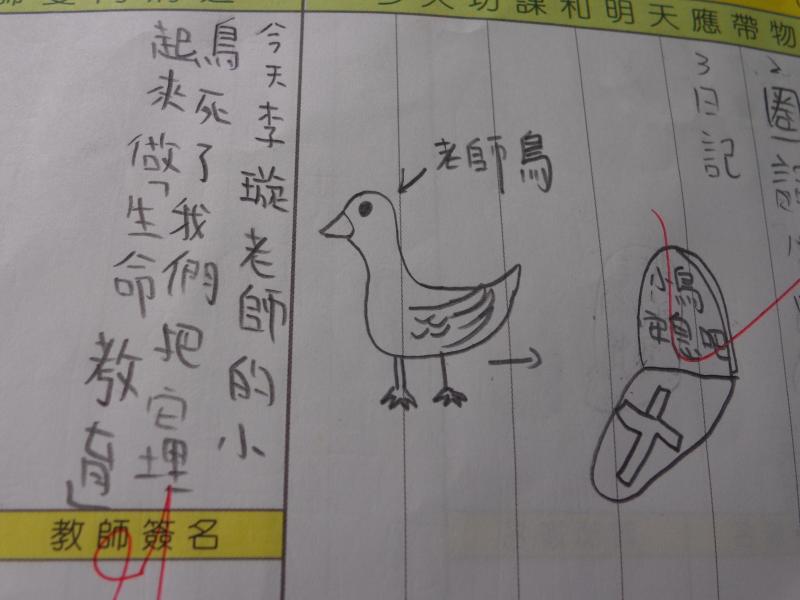 功課和明天應帶物
2圈詞
3日記
老師鳥
小鳥
安息吧
今天李璇老師的小
鳥死了我們把它埋
起來做「生命教育」
教師簽名